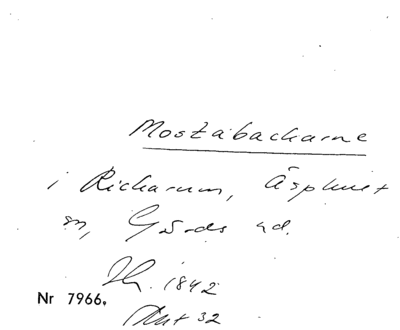 Mostabackarne
i Rickarum, Äsphult
sn, Gärds hd.
Th. 1842
Nr 7966.
Akt 32